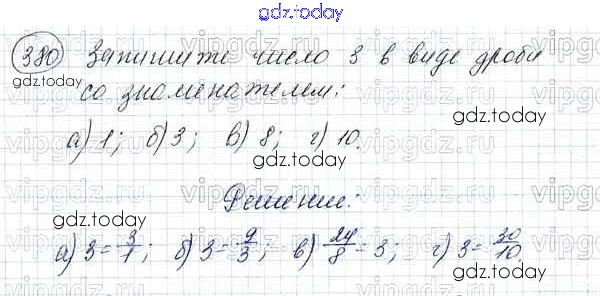 gdz.today
380 Запишите число 3 в виде дроби
gdz.today
со знаменателем:
gdz.today
а) 1; б) 3; в) 8; г) 10.
gdz.today
Решение:
gdz.today
а) 3 = 3/1; б) 3 = 9/3; в) 24/8 = 3; г) 3 = 30/10.
gdz.today
gdz.today
vipgdz.ru